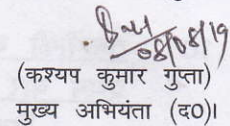 08/08/19
(कश्यप कुमार गुप्ता)
मुख्य अभियंता (द0)।